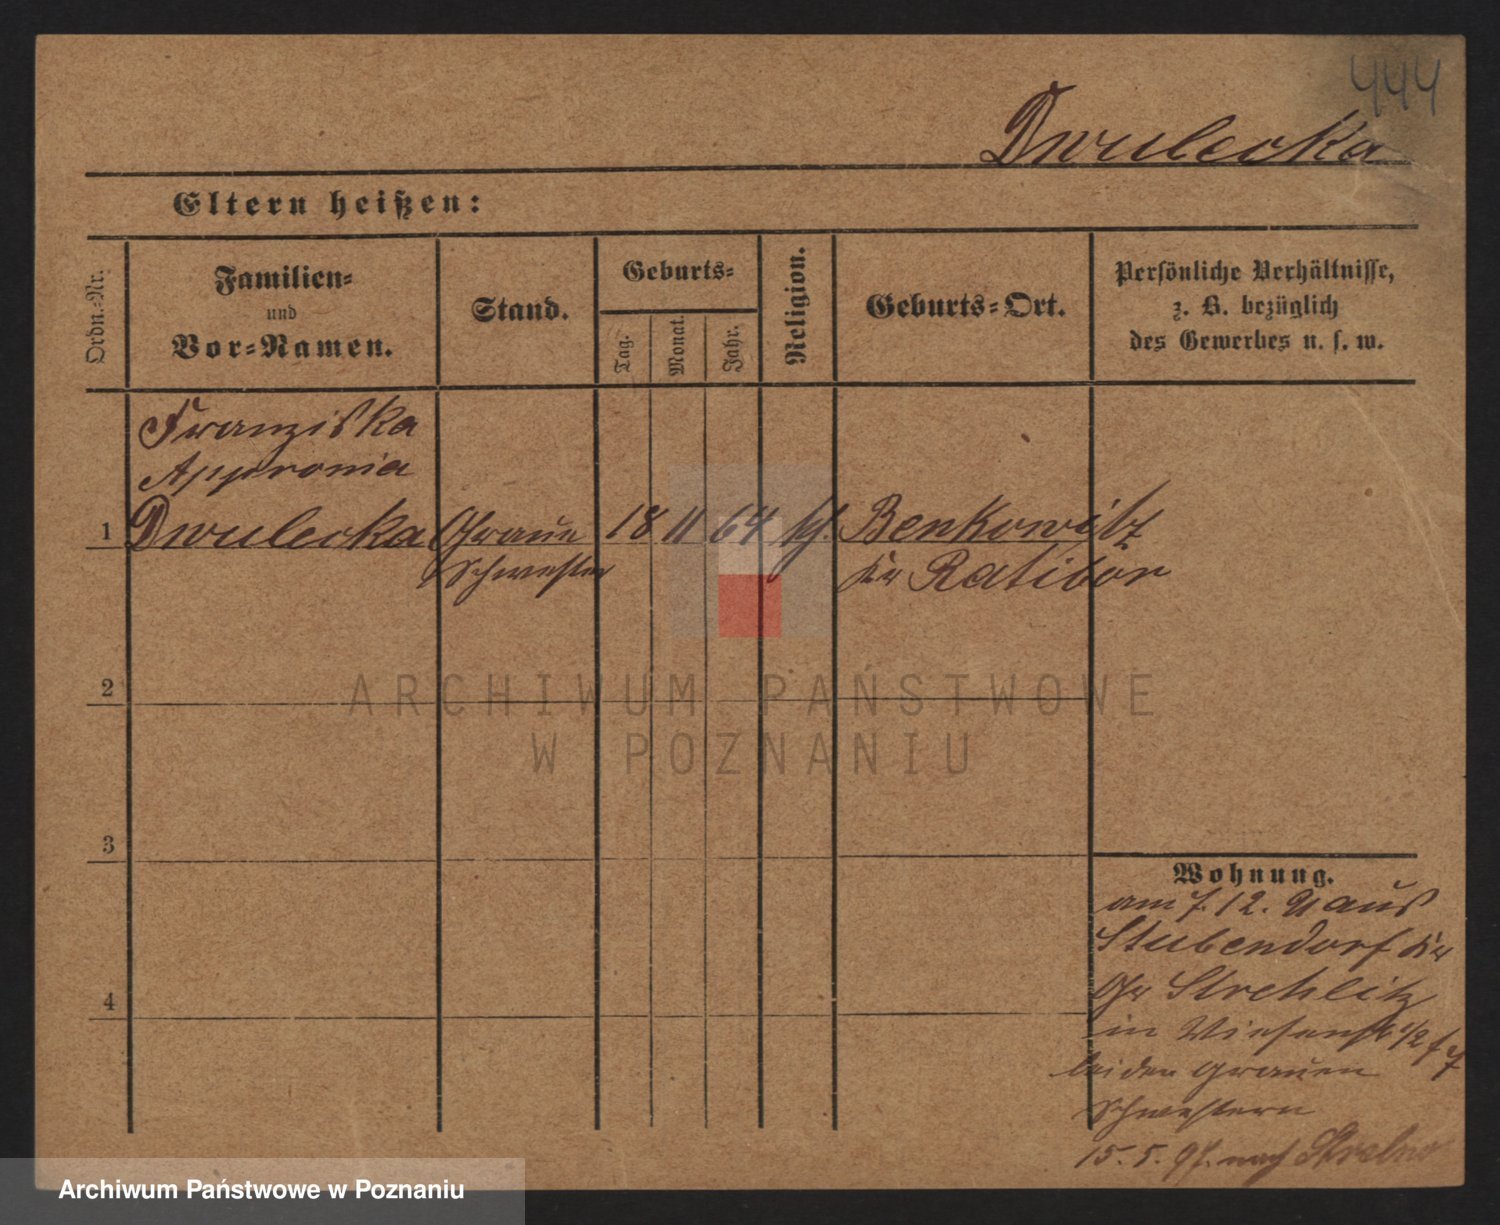 444
Dwulecka
Eltern heißen:
Ordn.-Nr.
Familien-
und
Vor-Namen.
Stand.
Geburts-
Tag.
Monat.
Jahr.
Religion.
Geburts-Ort.
Persönliche Verhältnisse,
z. B. bezüglich
des Gewerbes u. s. w.
Franziska
Appronia
1 Dwulecka Graue 18 11 64 kf. Benkowitz
Schwester Kr Ratibor
2
3
4
Wohnung.
am 7. 12. 91 aus
Stubendorf Kr
Gr Strehlitz
in Wiesenst 1/2
bei den grauen
Schwestern
15. 5. nach Strelno
ARCHIWUM PAŃSTWOWE
W POZNANIU
Archiwum Państwowe w Poznaniu